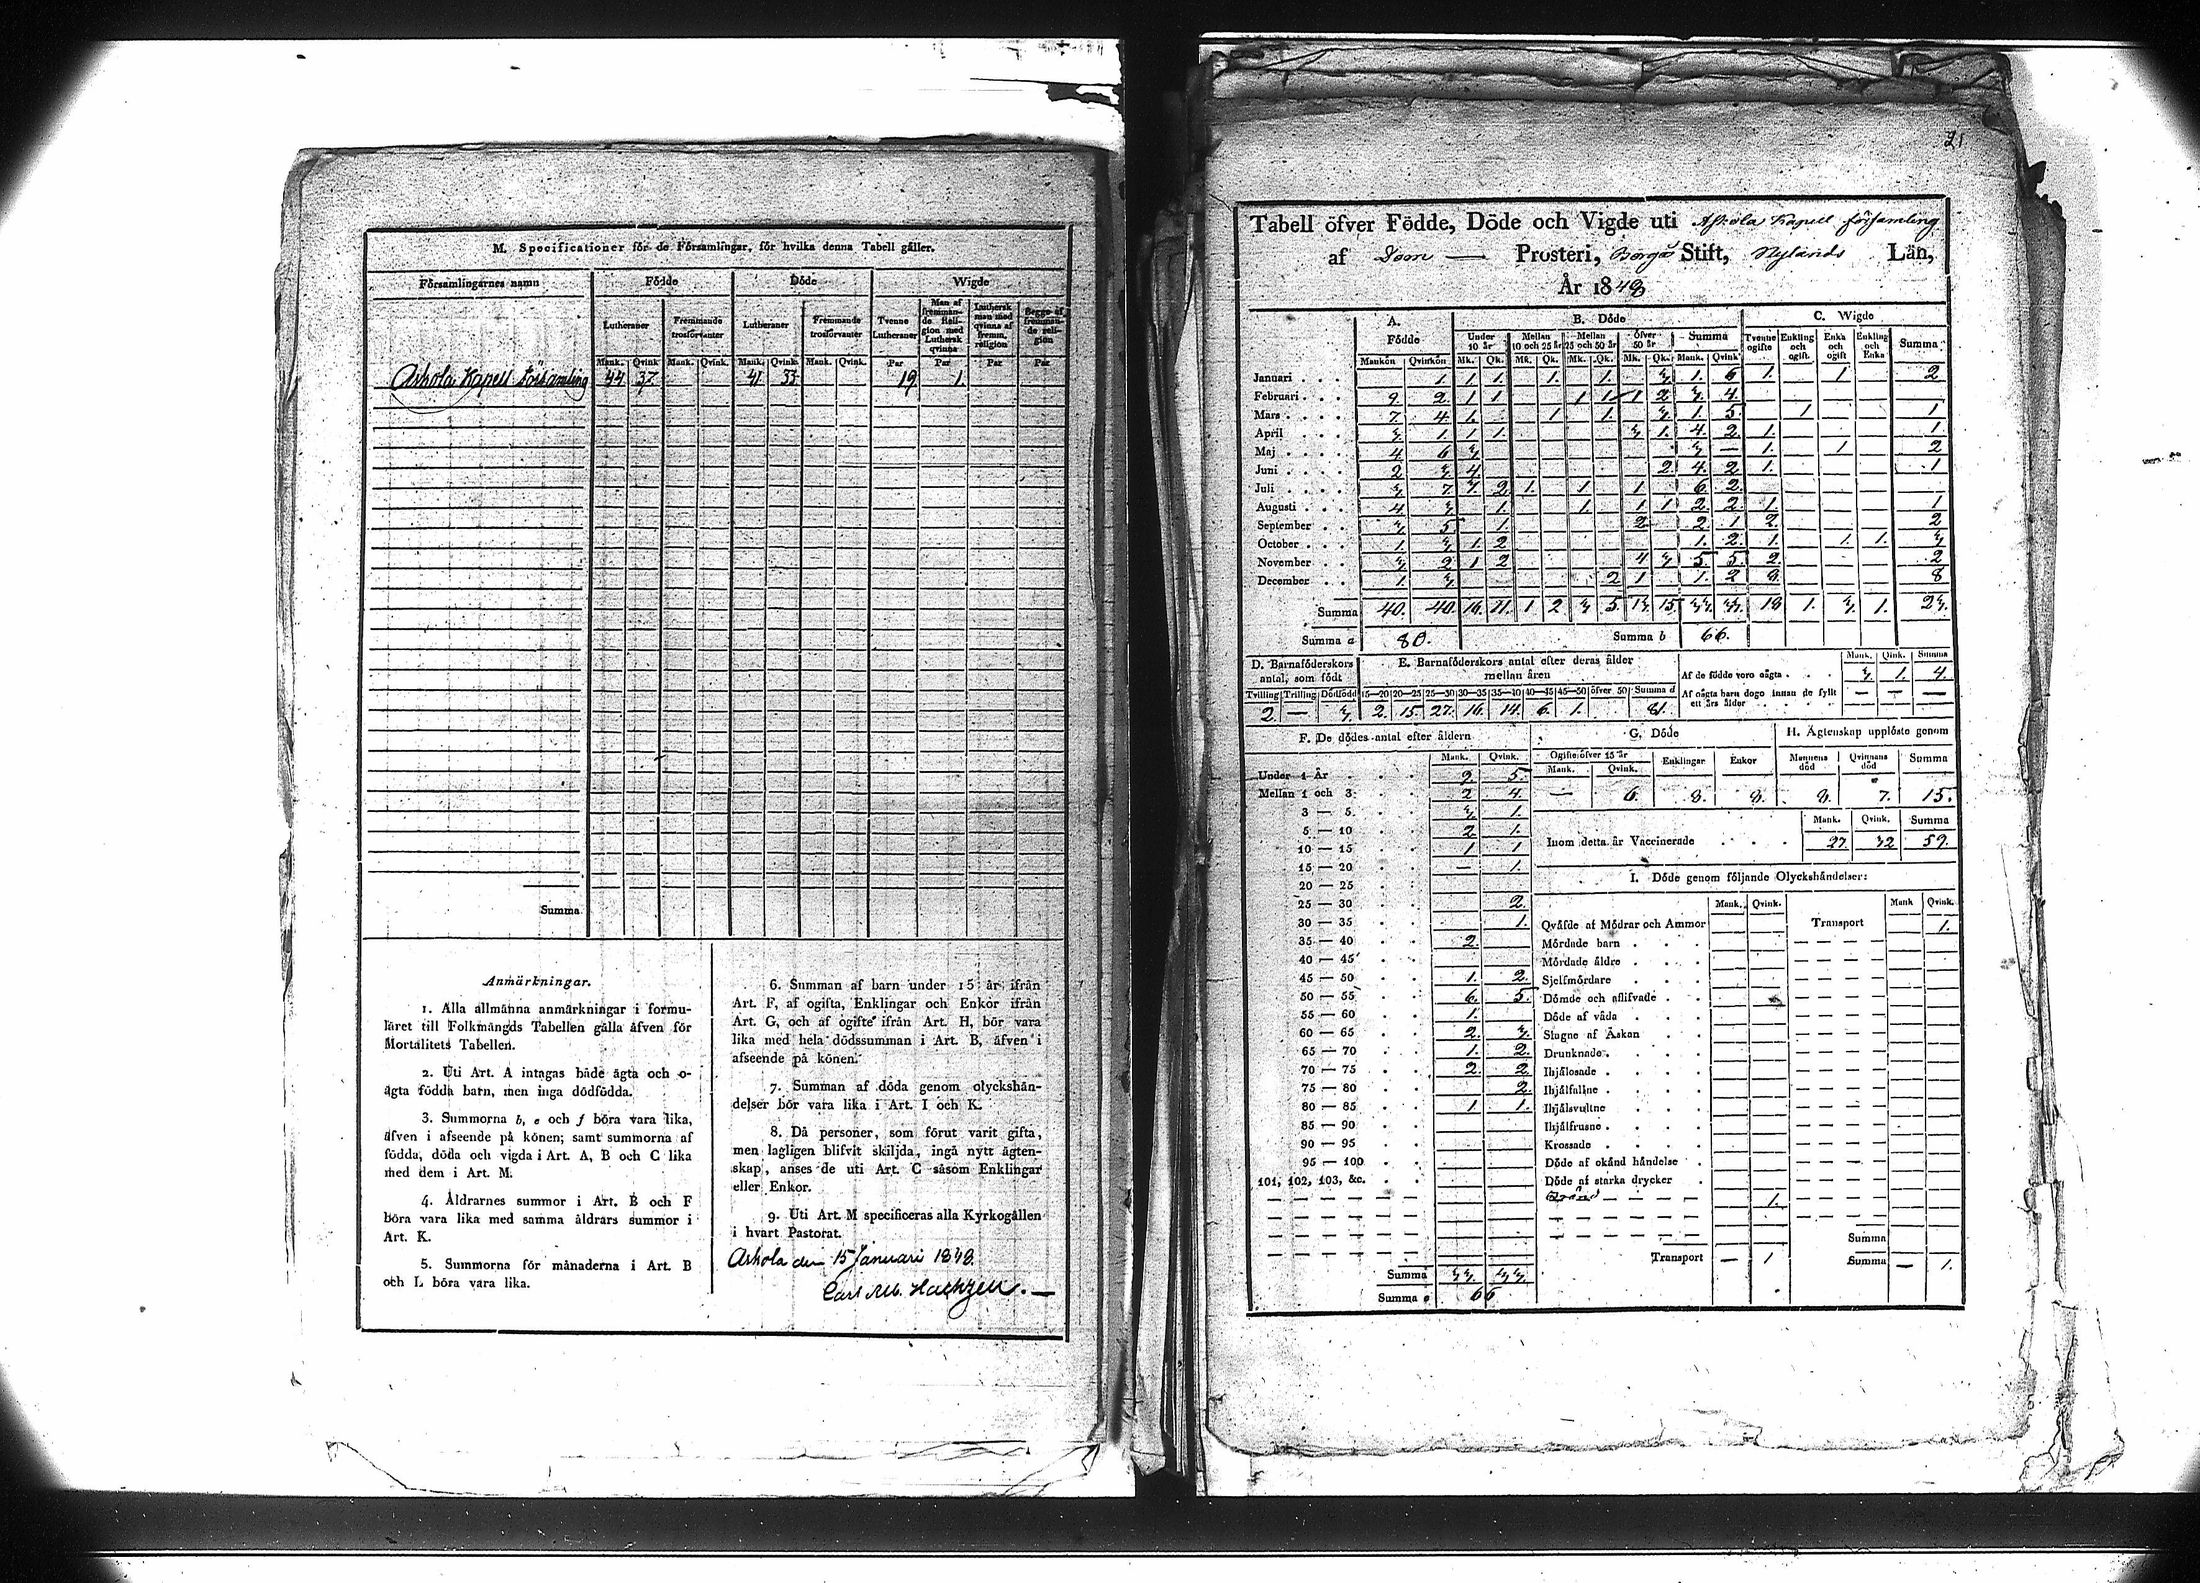 M. Specificationer för de Församlingar, för hvilka denna Tabell gäller.
Församlingarnes namn | Födde | Döde | Wigde
Lutheraner | Främmande trosförvanter | Lutheraner | Främmande trosförvanter | Tvenne Lutheraner | Man af fremmande Religion med Luthersk qvinna | Luthersk man med qvinna af fremm. religion | Begge af fremmande religion
Mank. | Qvink. | Mank. | Qvink. | Mank. | Qvink. | Mank. | Qvink. | Par | Par | Par | Par
Askola Kapell Församling | 44 | 37 | 41 | 33 | 19 | 1.
Summa
Anmärkningar.
1. Alla allmänna anmärkningar i formu-
läret till Folkmängds Tabellen gälla äfven för
Mortalitets Tabellen.
2. Uti Art. A intagas både ägta och o-
ägta födda barn, men inga dödfödda.
3. Summorna b, e och f böra vara lika,
äfven i afseende på könen; samt summorna af
födda, döda och vigda i Art. A, B och C lika
med dem i Art. M.
4. Åldrarnes summor i Art. B och F
böra vara lika med samma åldrars summor i
Art. K.
5. Summorna för månaderna i Art. B
och L böra vara lika.
6. Summan af barn under 15 år ifrån
Art. F, af ogifta, Enklingar och Enkor ifrån
Art. G, och af ogifte ifrån Art. H, bör vara
lika med hela dödssumman i Art. B, äfven i
afseende på könen.
7. Summan af döda genom olyckshän-
delser bör vara lika i Art. I och K.
8. Då personer, som förut varit gifta,
men lagligen blifvit skiljda, ingå nytt ägten-
skap, anses de uti Art. C såsom Enklingar
eller Enkor.
9. Uti Art. M specificeras alla Kyrkogällen
i hvart Pastorat.
Askola den 15 Januari 1848.
21
Tabell öfver Födde, Döde och Vigde uti Askola Kapell församling
af Dom — Prosteri, Borgå Stift, Nylands Län,
År 1848
A. Födde | B. Döde | C. Wigde
Under 10 år | Mellan 10 och 25 år | Mellan 25 och 50 år | öfver 50 år | Summa | Tvenne ogifte | Enkling och ogift. | Enka och ogift | Enkling och Enka | Summa
Mankön | Qvinkön | Mk. | Qk. | Mk. | Qk. | Mk. | Qk. | Mk. | Qk. | Mank. | Qvink.
Januari . . . | 1. | 1. | 1. | 1. | 1. | 3. | 1. | 6 | 1. | 1 | 2
Februari . . . | 9. | 2. | 1 | 1 | 1 | 1. | 1 | 2 | 3. | 4.
Mars . . . | 7. | 4 | 1. | 1 | 1. | 3. | 1. | 5. | 1 | 1
April . . . | 3. | 1. | 1 | 1. | 3 | 1. | 4. | 2. | 1. | 1
Maj . . . | 4. | 6 | 3. | 3. | — | 1. | 1 | 2
Juni . . . | 2 | 3. | 4. | 2. | 4. | 2 | 1. | 1
Juli . . . | 3. | 7. | 3. | 2. | 1. | 1 | 1 | 6 | 2.
Augusti . . | 4 | 3. | 1. | 1. | 1 | 1 | 2. | 2. | 1. | 1
September . . | 3. | 5 | 1. | 2. | 2. | 1 | 2. | 2
October . . . | 1. | 3. | 1. | 2 | 1. | 2. | 1. | 1. | 1. | 3.
November . . | 3. | 2. | 1 | 2 | 4 | 3. | 5. | 5. | 2. | 2
December . . | 1. | 3. | 2 | 1. | 1. | 2 | 8. | 8
Summa | 40. | 40. | 16. | 11. | 1 | 2 | 3 | 5. | 13. | 15. | 33. | 33. | 18 | 1. | 3. | 1. | 23.
Summa a | 80. | Summa b | 66.
D. Barnaföderskors antal, som födt | E. Barnaföderskors antal efter deras ålder mellan åren
Mank. | Qink. | Summa
Af de födde voro oägta . . . | 3. | 1. | 4.
Af oägta barn dogo innan de fyllt ett års ålder . . . . | — | — | —
Tvilling | Trilling | Dödfödd | 15—20 | 20—25 | 25—30 | 30—35 | 35—40 | 40—45 | 45—50 | öfver 50 | Summa d
2. | — | 3. | 2. | 15. | 27. | 16. | 14. | 6. | 1. | 81.
F. De dödes antal efter åldern
Mank. | Qvink.
Under 1 År . . . | 9. | 5.
Mellan 1 och 3. . . | 2 | 4.
3 — 5. . . | 3. | 1.
5 — 10 . . | 2. | 1.
10 — 15 . . | 1 | 1
15 — 20 . . | — | 1.
20 — 25 . .
25 — 30 . . | 2.
30 — 35 . . | 1.
35 — 40 . . | 2.
40 — 45 . .
45 — 50 . . | 1. | 2.
50 — 55 . . | 6. | 5.
55 — 60 . . | 1.
60 — 65 . . | 2. | 3.
65 — 70 . . | 1. | 2.
70 — 75 . . | 2. | 2.
75 — 80 . . | 2.
80 — 85 . . | 1 | 1.
85 — 90 . .
90 — 95 . .
95 — 100 . .
101, 102, 103, &c. . .
Summa | 33. | 33.
Summa e | 66
G. Döde | H. Ägtenskap upplöste genom
Ogifte öfver 15 år | Enklingar | Enkor | Mannens död | Qvinnans död | Summa
Mank. | Qvink.
— | 6. | 8. | 8. | 8. | 7. | 15.
Mank. | Qvink. | Summa
Inom detta år Vaccinerade . . . . | 27. | 32 | 59.
I. Döde genom följande Olyckshändelser:
Mank. | Qvink. | Mank | Qvink.
Qväfde af Mödrar och Ammor | Transport | 1.
Mördade barn . . .
Mördade äldre . . .
Sjelfmördare . . .
Dömde och aflifvade . .
Döde af våda . . .
Slagne af Åskan . .
Drunknade . . . .
Ihjälosade . . . .
Ihjälfallne . . . .
Ihjälsvultne . . .
Ihjälfrusne . . . .
Krossade . . . .
Döde af okänd händelse .
Döde af starka drycker .
1.
Summa
Transport | — | 1 | Summa | — | 1.